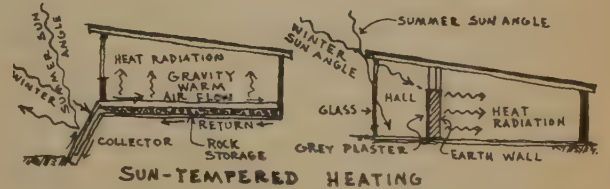 SUMMER SUN
ANGLE
WINTER
HEAT RADIATION
GRAVITY
WARM
AIR FLOW
RETURN
COLLECTOR
ROCK
STORAGE
SUMMER SUN ANGLE
WINTER
SUN ANGLE
GLASS
HALL
HEAT
RADIATION
GREY PLASTER
EARTH WALL
SUN-TEMPERED HEATING